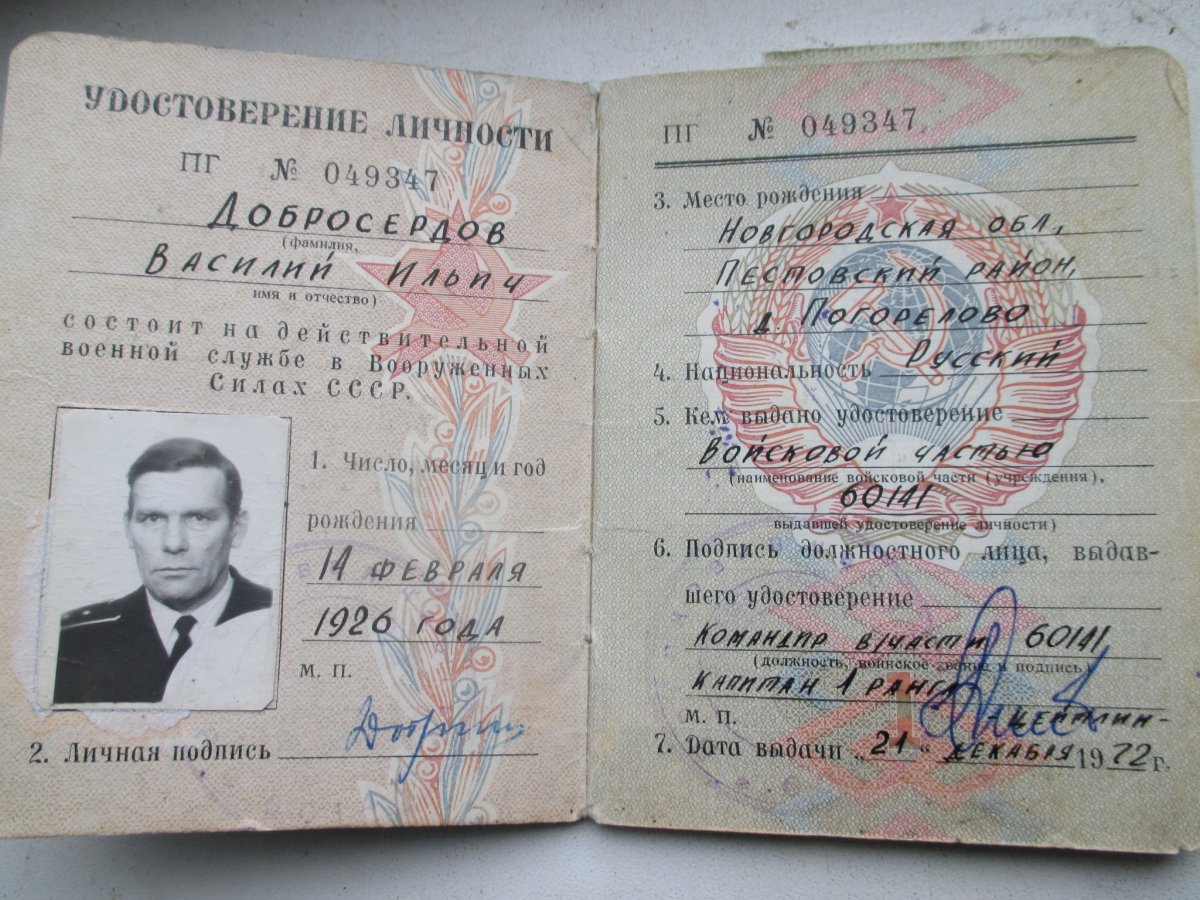 УДОСТОВЕРЕНИЕ ЛИЧНОСТИ
ПГ № 049347
Добросердов
(фамилия,
Василий Ильич
имя и отчество)
состоит на действительной
военной службе в Вооруженных
Силах СССР.
1. Число, месяц и год
рождения
14 февраля
1926 года
М. П.
2. Личная подпись
ПГ № 049347
3. Место рождения
Новгородская обл.,
Пестовский район,
д. Погорелово
4. Национальность Русский
5. Кем выдано удостоверение
Войсковой частью
(наименование войсковой части (учреждения),
60141
выдавшей удостоверение личности)
6. Подпись должностного лица, выдав-
шего удостоверение
Командир в/части 60141
(должность, воинское звание и подпись)
капитан 1 ранга
М. П.
7. Дата выдачи „21“ декабря 1972 г.